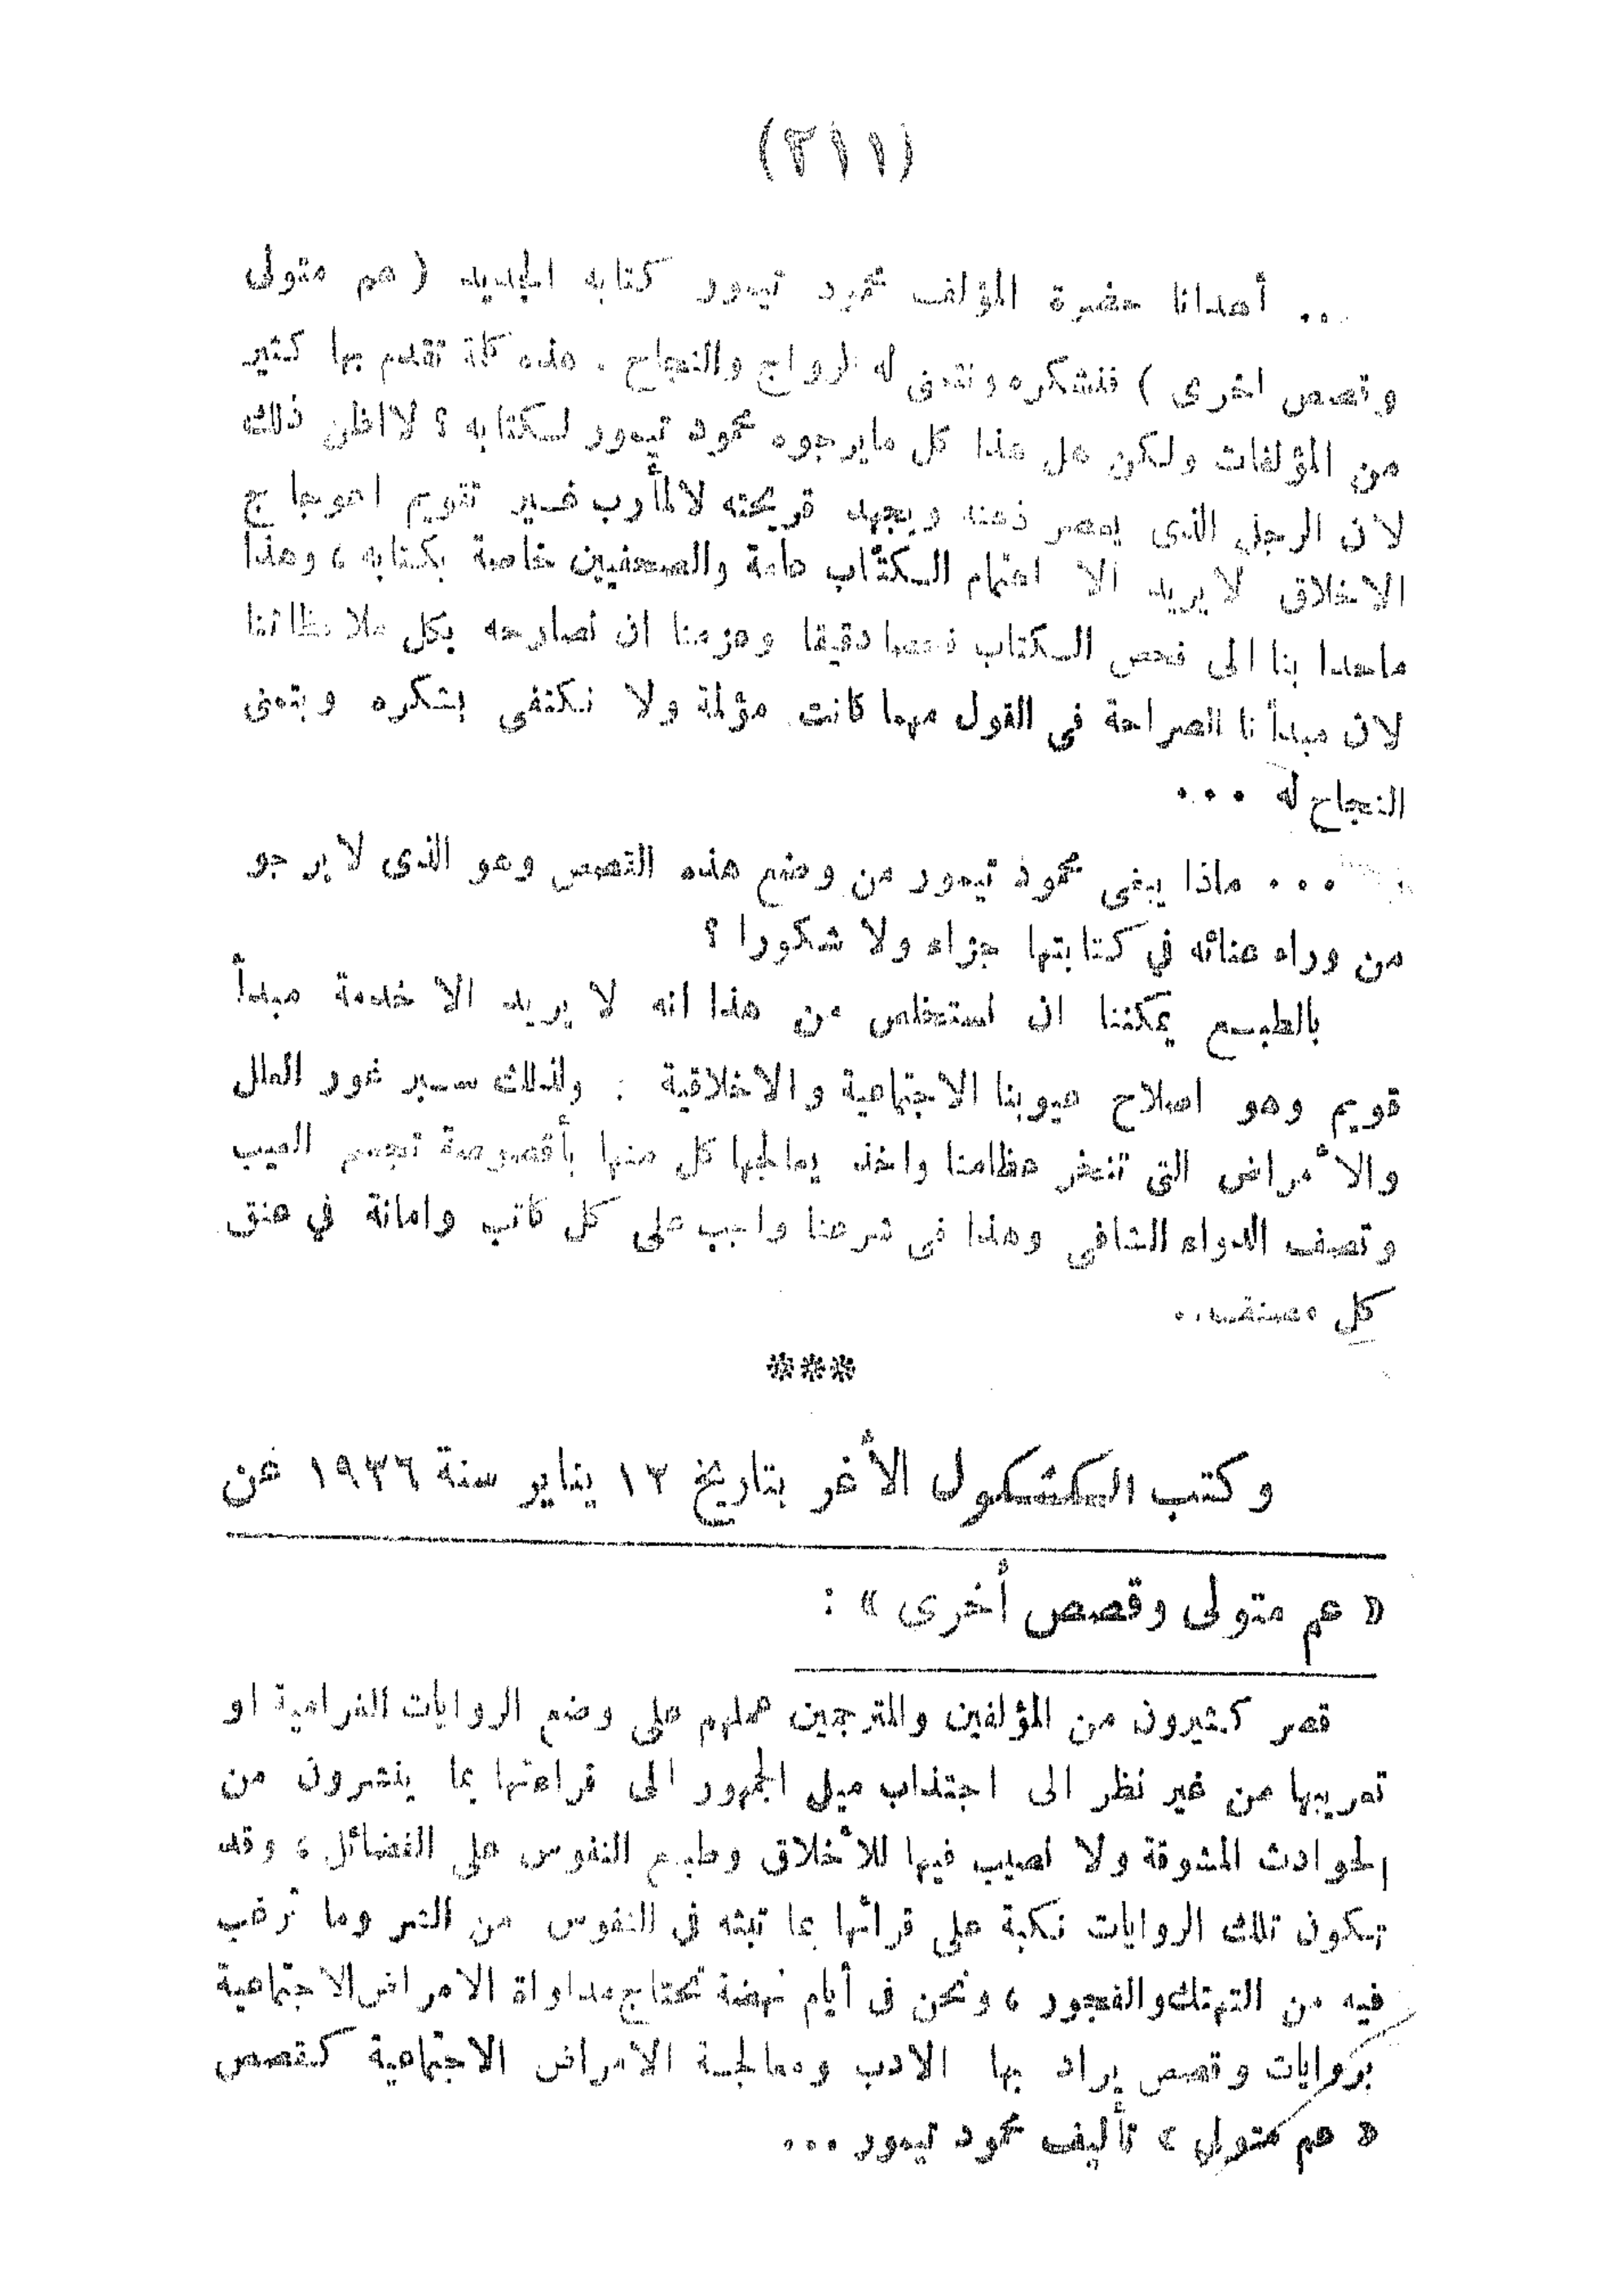 (٢١١)
... أهدانا حضرة المؤلف محمود تيمور كتابه الجديد ( عم متولى
وقصص اخرى ) فنشكره ونتمنى له الرواج والنجاح . هذه كلمة تقدم بها كثير
من المؤلفات ولكن هل هذا كل مايرجوه محمود تيمور لكتابه ؟ لا اظن ذلك
لان الرجل الذى يعصر ذهنه ويجهد قريحته لالمأرب غير تقويم اعوجاج
الاخلاق لايريد الا اهتمام الكتّاب عامة والصحفيين خاصة بكتابه ، وهذا
ماحدا بنا الى فحص الكتاب فحصا دقيقا وعزمنا ان نصارحه بكل ملاحظاتنا
لان مبدأنا الصراحة في القول مهما كانت مؤلمة ولا نكتفى بشكره وبتمنى
النجاح له ...
... ماذا يبغى محمود تيمور من وضع هذه القصص وهو الذى لايرجو
من وراء عنائه في كتابتها جزاء ولا شكورا ؟
بالطبع يمكننا ان نستخلص من هذا انه لا يريد الا خدمة مبدأ
قويم وهو اصلاح عيوبنا الاجتماعية والاخلاقية . ولذلك سبر غور العلل
والأمراض التى تنخر عظامنا واخذ يعالجها كل منها بأقصوصة تجسم العيب
وتصف الدواء الشافي وهذا فى شرعنا واجب على كل كاتب وامانة في عنق
كل مصنف..
***
وكتب الكشكول الأغر بتاريخ ١٢ يناير سنة ١٩٢٦ عن
« عم متولى وقصص أخرى » :
قصر كثيرون من المؤلفين والمترجمين عملهم على وضع الروايات الغرامية او
تعريبها من غير نظر الى اجتذاب ميل الجمهور الى قراءتها بما ينشرون من
الحوادث المشوقة ولا نصيب فيها للأخلاق وطبع النفوس على الفضائل ، وقد
تكون تلك الروايات نكبة على قرائها بما تبثه فى النفوس من الشر وما ترغب
فيه من التهتك والفجور ، ونحن فى أيام نهضة تحتاج مداواة الامراض الاجتماعية
بروايات وقصص يراد بها الادب ومعالجة الامراض الاجتماعية كقصص
« عم متولى » تأليف محمود تيمور ...